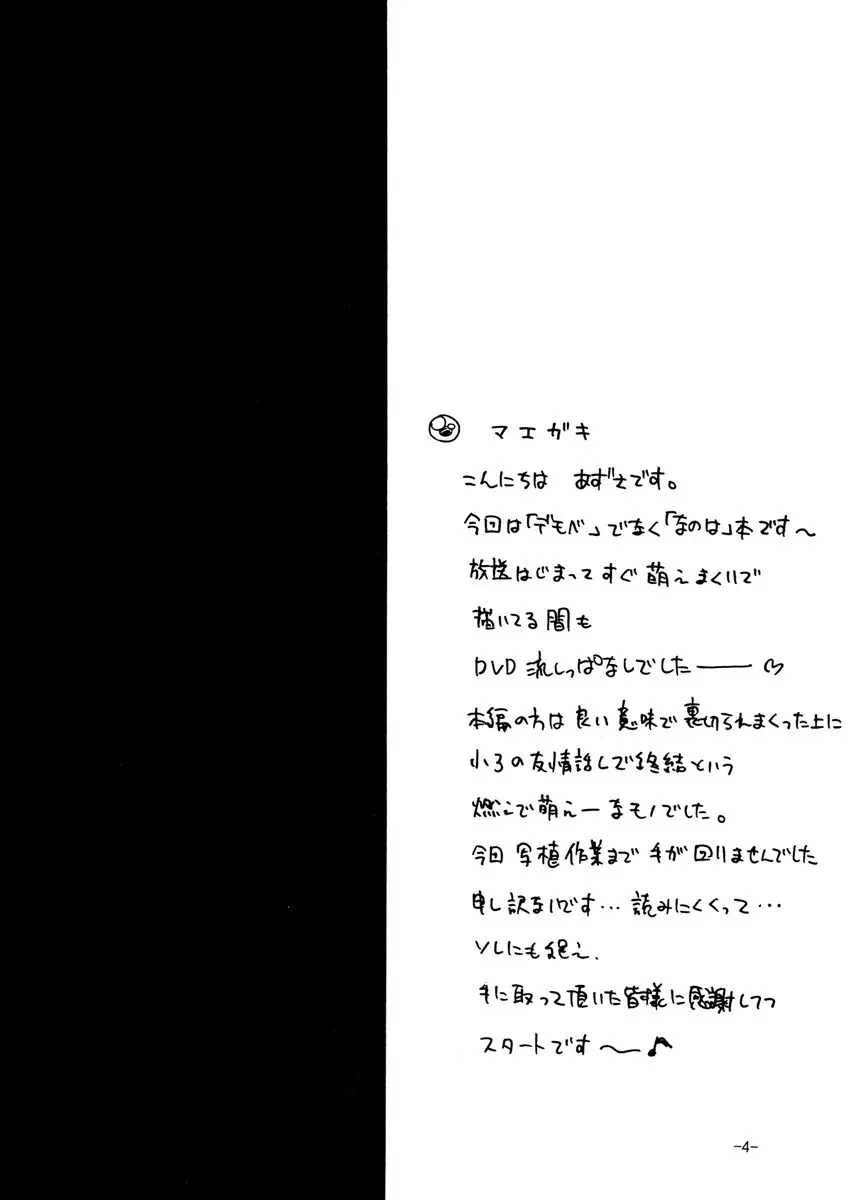 マエガキ
こんにちは あずさです。
今回は「デモベ」でなく「なのは」本です〜
放送はじまってすぐ萌えまくりで
描いてる間も
DVD 流しっぱなしでした——♡
本編の方は良い意味で裏切られまくった上に
小3の友情話しで終結という
燃えで萌えーなモノでした。
今回 写植作業まで手が回りませんでした
申し訳ないです…読みにくくって…
ソレにも絶え、
手に取って頂いた皆様に感謝してつつ
スタートです〜♪
-4-